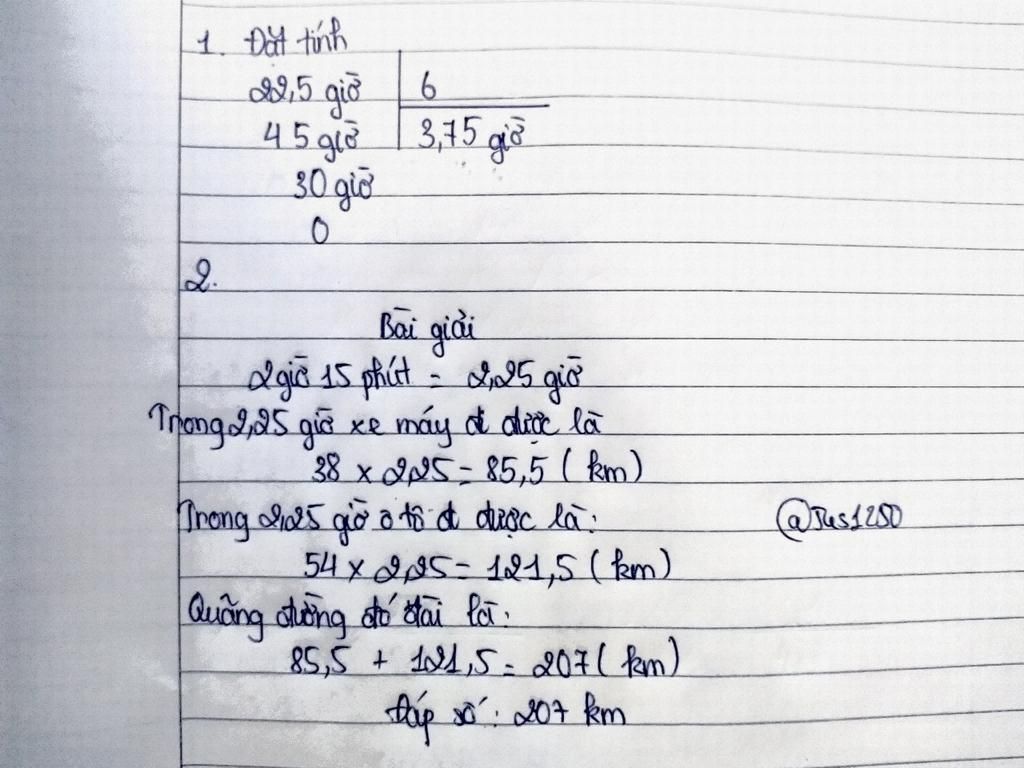 1. Đặt tính
22,5 giờ 6
45 giờ 3,75 giờ
30 giờ
0
2.
Bài giải
2 giờ 15 phút = 2,25 giờ
Trong 2,25 giờ xe máy đi được là
38 x 2,25 = 85,5 ( km)
Trong 2,25 giờ ô tô đi được là:
@Tus1280
54 x 2,25 = 121,5 ( km)
Quãng đường đó dài là:
85,5 + 121,5 = 207 ( km)
Đáp số: 207 km